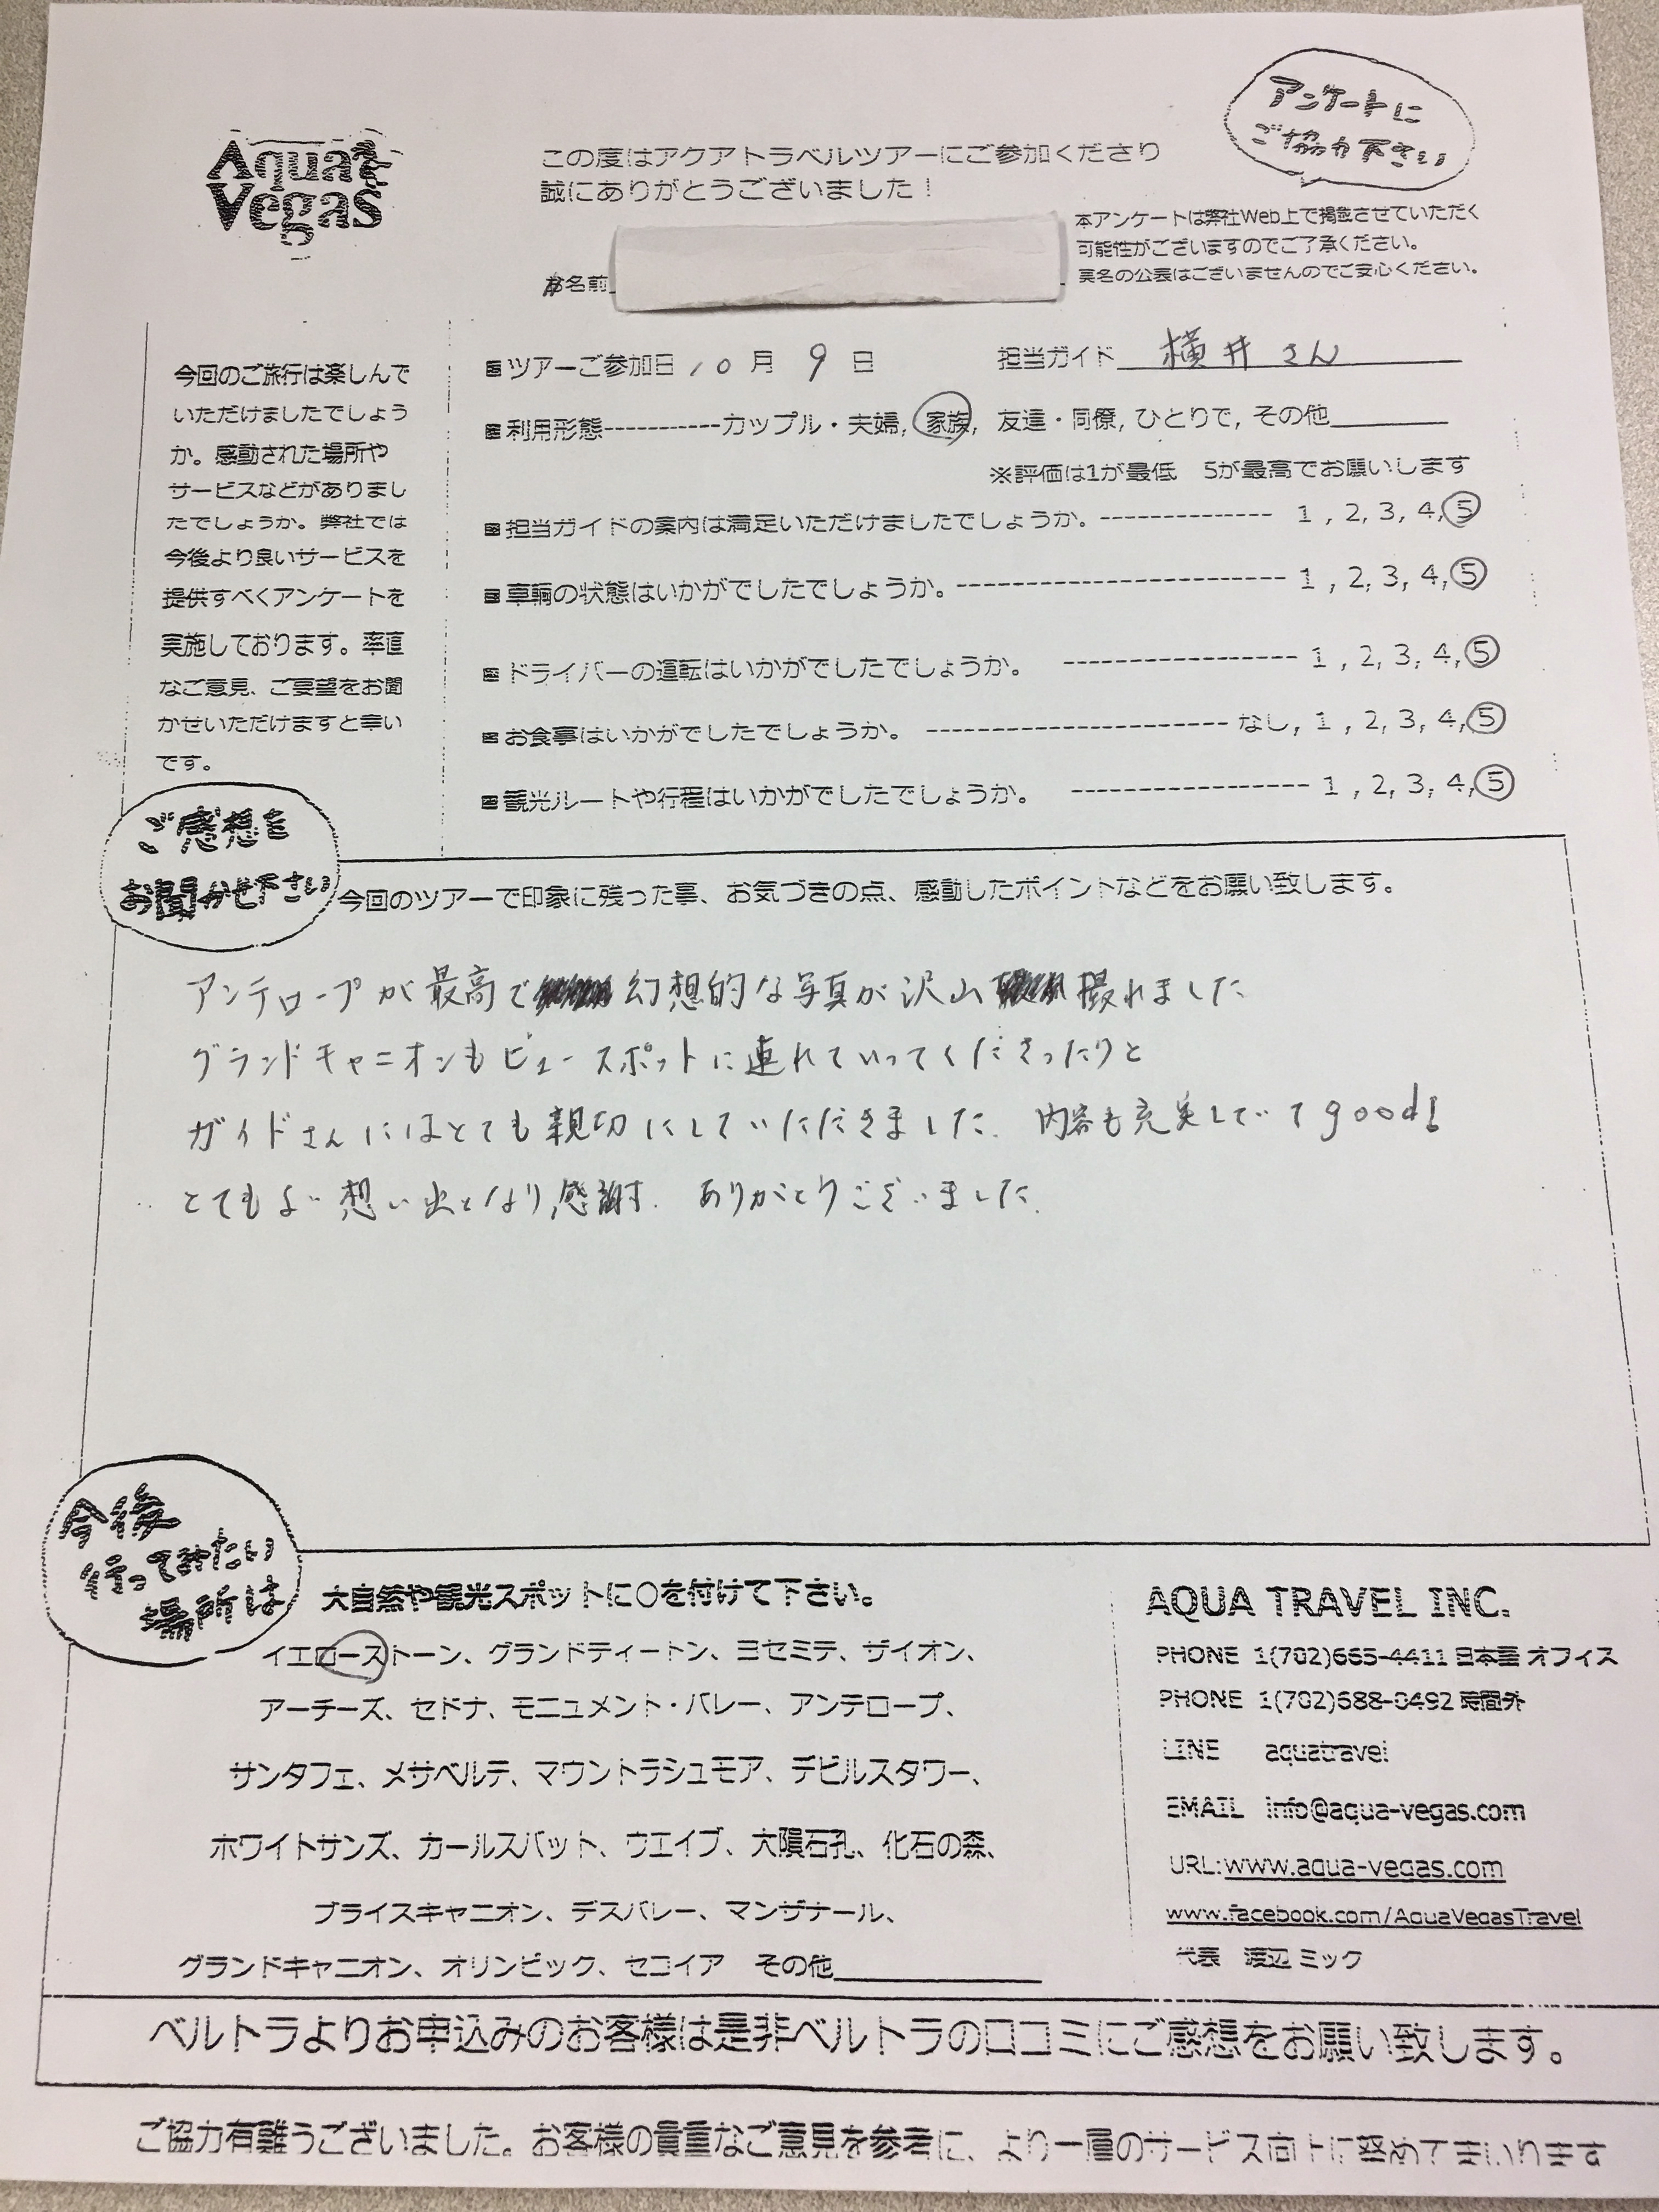 Aqua
Vegas
この度はアクアトラベルツアーにご参加くださり
誠にありがとうございました！
アンケートに
ご協力下さい
本アンケートは弊社Web上で掲載させていただく
可能性がございますのでご了承ください。
実名の公表はございませんのでご安心ください。
お名前
今回のご旅行は楽しんで
いただけましたでしょう
か。感動された場所や
サービスなどがありまし
たでしょうか。弊社では
今後より良いサービスを
提供すべくアンケートを
実施しております。率直
なご意見、ご要望をお聞
かせいただけますと幸い
です。
ツアーご参加日 10 月 9 日 担当ガイド 横井さん
利用形態-----------カップル・夫婦, 家族, 友達・同僚, ひとりで, その他
※評価は1が最低 5が最高でお願いします
担当ガイドの案内は満足いただけましたでしょうか。-------------- 1 , 2, 3, 4, 5
車輌の状態はいかがでしたでしょうか。------------------------ 1 , 2, 3, 4, 5
ドライバーの運転はいかがでしたでしょうか。 ----------------- 1 , 2, 3, 4, 5
お食事はいかがでしたでしょうか。 ---------------------- なし, 1 , 2, 3, 4, 5
観光ルートや行程はいかがでしたでしょうか。 ----------------- 1 , 2, 3, 4, 5
ご感想を
お聞かせ下さい
今回のツアーで印象に残った事、お気づきの点、感動したポイントなどをお願い致します。
アンテロープが最高で幻想的な写真が沢山撮れました
グランドキャニオンもビュースポットに連れていってくださったりと
ガイドさんにはとても親切にしていただきました. 内容も充実していてgood!
とてもよい想い出となり感謝. ありがとうございました.
今後
行ってみたい
場所は
大自然や観光スポットに○を付けて下さい。
イエローストーン、グランドティートン、ヨセミテ、ザイオン、
アーチーズ、セドナ、モニュメント・バレー、アンテロープ、
サンタフェ、メサベルテ、マウントラシュモア、デビルスタワー、
ホワイトサンズ、カールスバット、ウエイブ、大隕石孔、化石の森、
ブライスキャニオン、デスバレー、マンザナール、
グランドキャニオン、オリンピック、セコイア その他
AQUA TRAVEL INC.
PHONE 1(702)665-4411 日本語 オフィス
PHONE 1(702)688-0492 時間外
LINE aquatravel
EMAIL info@aqua-vegas.com
URL:www.aqua-vegas.com
www.facebook.com/AquaVegasTravel
代表 渡辺 ミック
ベルトラよりお申込みのお客様は是非ベルトラの口コミにご感想をお願い致します。
ご協力有難うございました。お客様の貴重なご意見を参考に、より一層のサービス向上に努めてまいります